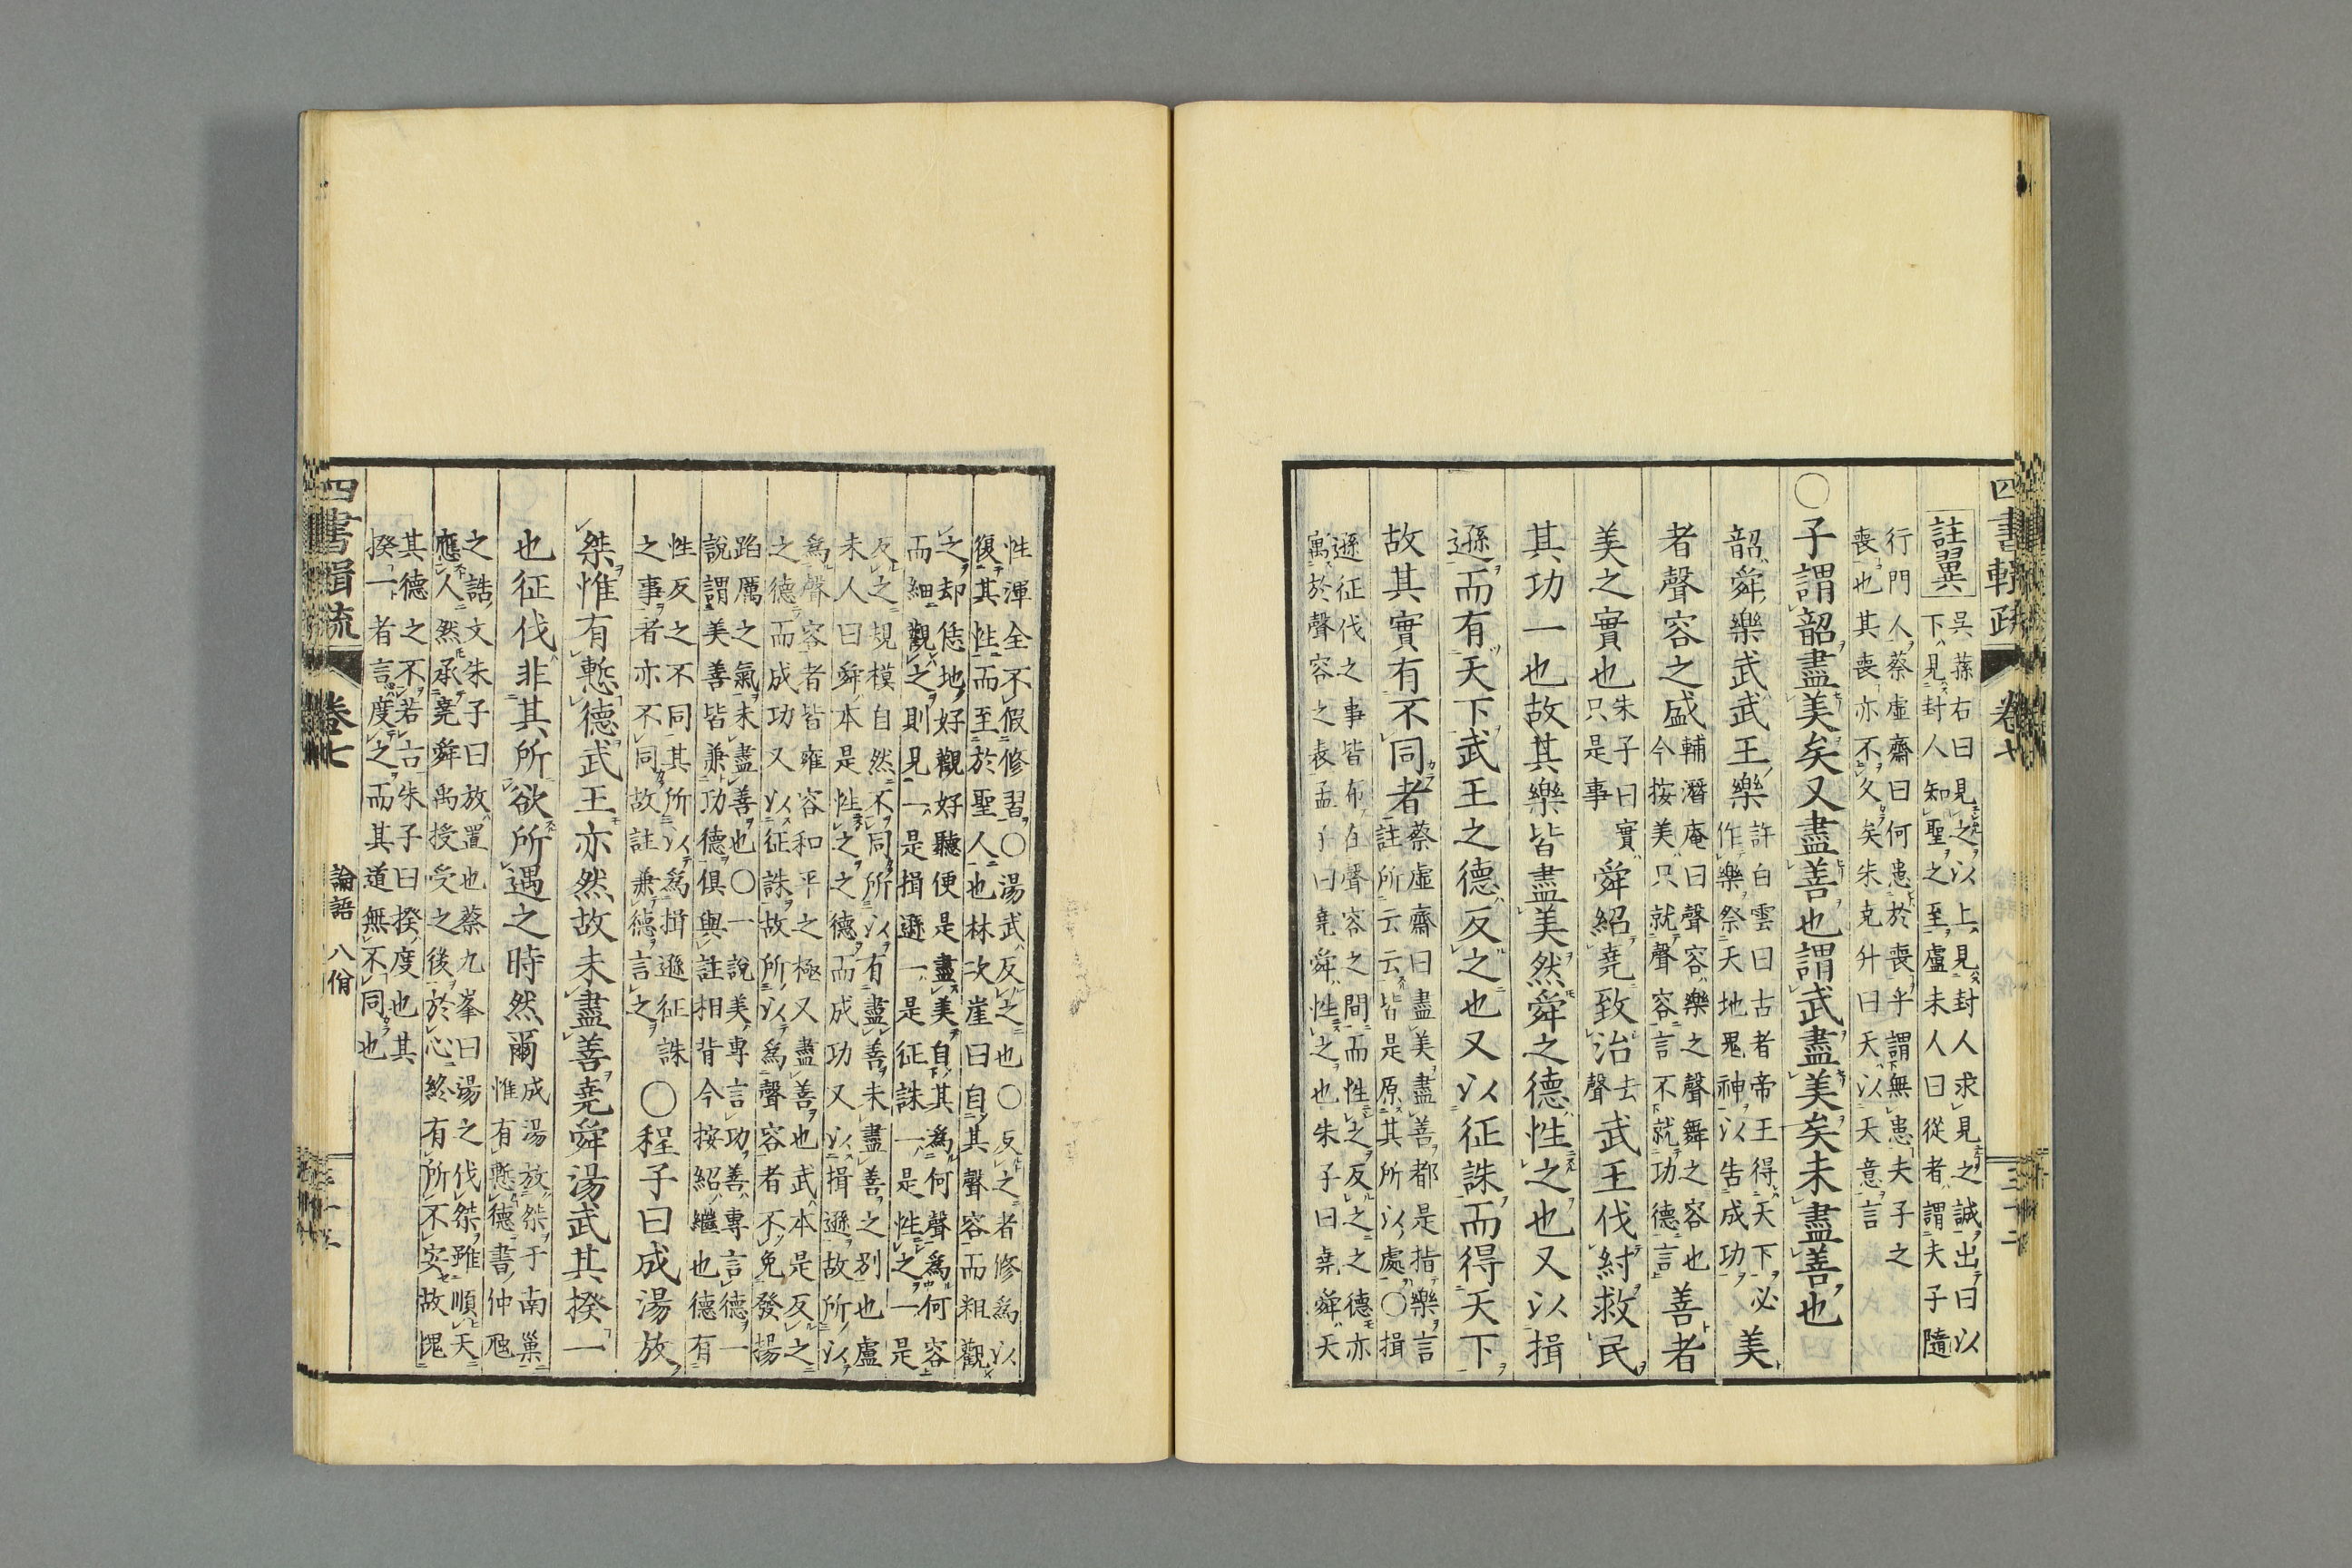 四書輯疏
卷七
註異
吳蓀右曰見之以上見封人求見之誠出曰以
下見封人知聖之至盧未人曰從者謂夫子隨
行門人蔡虛齋曰何患於喪乎謂無患夫子之
喪也其喪亦不久矣朱克升曰天以天意言
○子謂韶盡美矣又盡善也謂武盡美矣未盡善也
韶舜樂武武王樂
許白雲曰古者帝王得天下必
作樂祭天地鬼神以告成功
美
者聲容之盛
輔潛庵曰聲容樂之聲舞之容也
今按美只就聲容言不就功德言
善者
美之實也
朱子曰實
只是事
舜紹堯致治
去
聲
武王伐紂救民
其功一也故其樂皆盡美然舜之德性之也又以揖
遜而有天下武王之德反之也又以征誅而得天下
故其實有不同者
蔡虛齋曰盡美盡善都是指樂言
註所云云皆是原其所以處○揖
遜征伐之事皆布在聲容之間而性之反之之德亦
寓於聲容之表孟子曰堯舜性之也朱子曰堯舜天
性渾全不假修習○湯武反之也○反之者修為以
復其性而至於聖人也林次崖曰自其聲容而粗觀
之却恁地好觀好聽便是盡美自其為何聲為何容
而細觀之則見一是揖遜一是征誅一是性之一是
反之規模自然不同所以有盡善未盡善之別也盧
未人曰舜本是性之之德而成功又以揖遜故所以
為聲容者皆雍容和平之極又盡善也武本是反之
之德而成功又以征誅故所以為聲容者不免發揚
蹈厲之氣未盡善也○一說美專言功善專言德一
說謂美善皆兼功德俱與註相背今按紹繼也德有
性反之不同其所以為揖遜征誅
之事者亦不同故註兼德言之
○程子曰成湯放
桀惟有慙德武王亦然故未盡善堯舜湯武其揆一
也征伐非其所欲所遇之時然爾
成湯放桀于南巢
惟有慙德書仲虺
之誥文朱子曰放置也蔡九峯曰湯之伐桀雖順天
應人然承堯舜禹授受之後於心終有所不安故愧
其德之不若古朱子曰揆度也其
揆一者言度之而其道無不同也
四書輯疏
卷七
論語 八佾